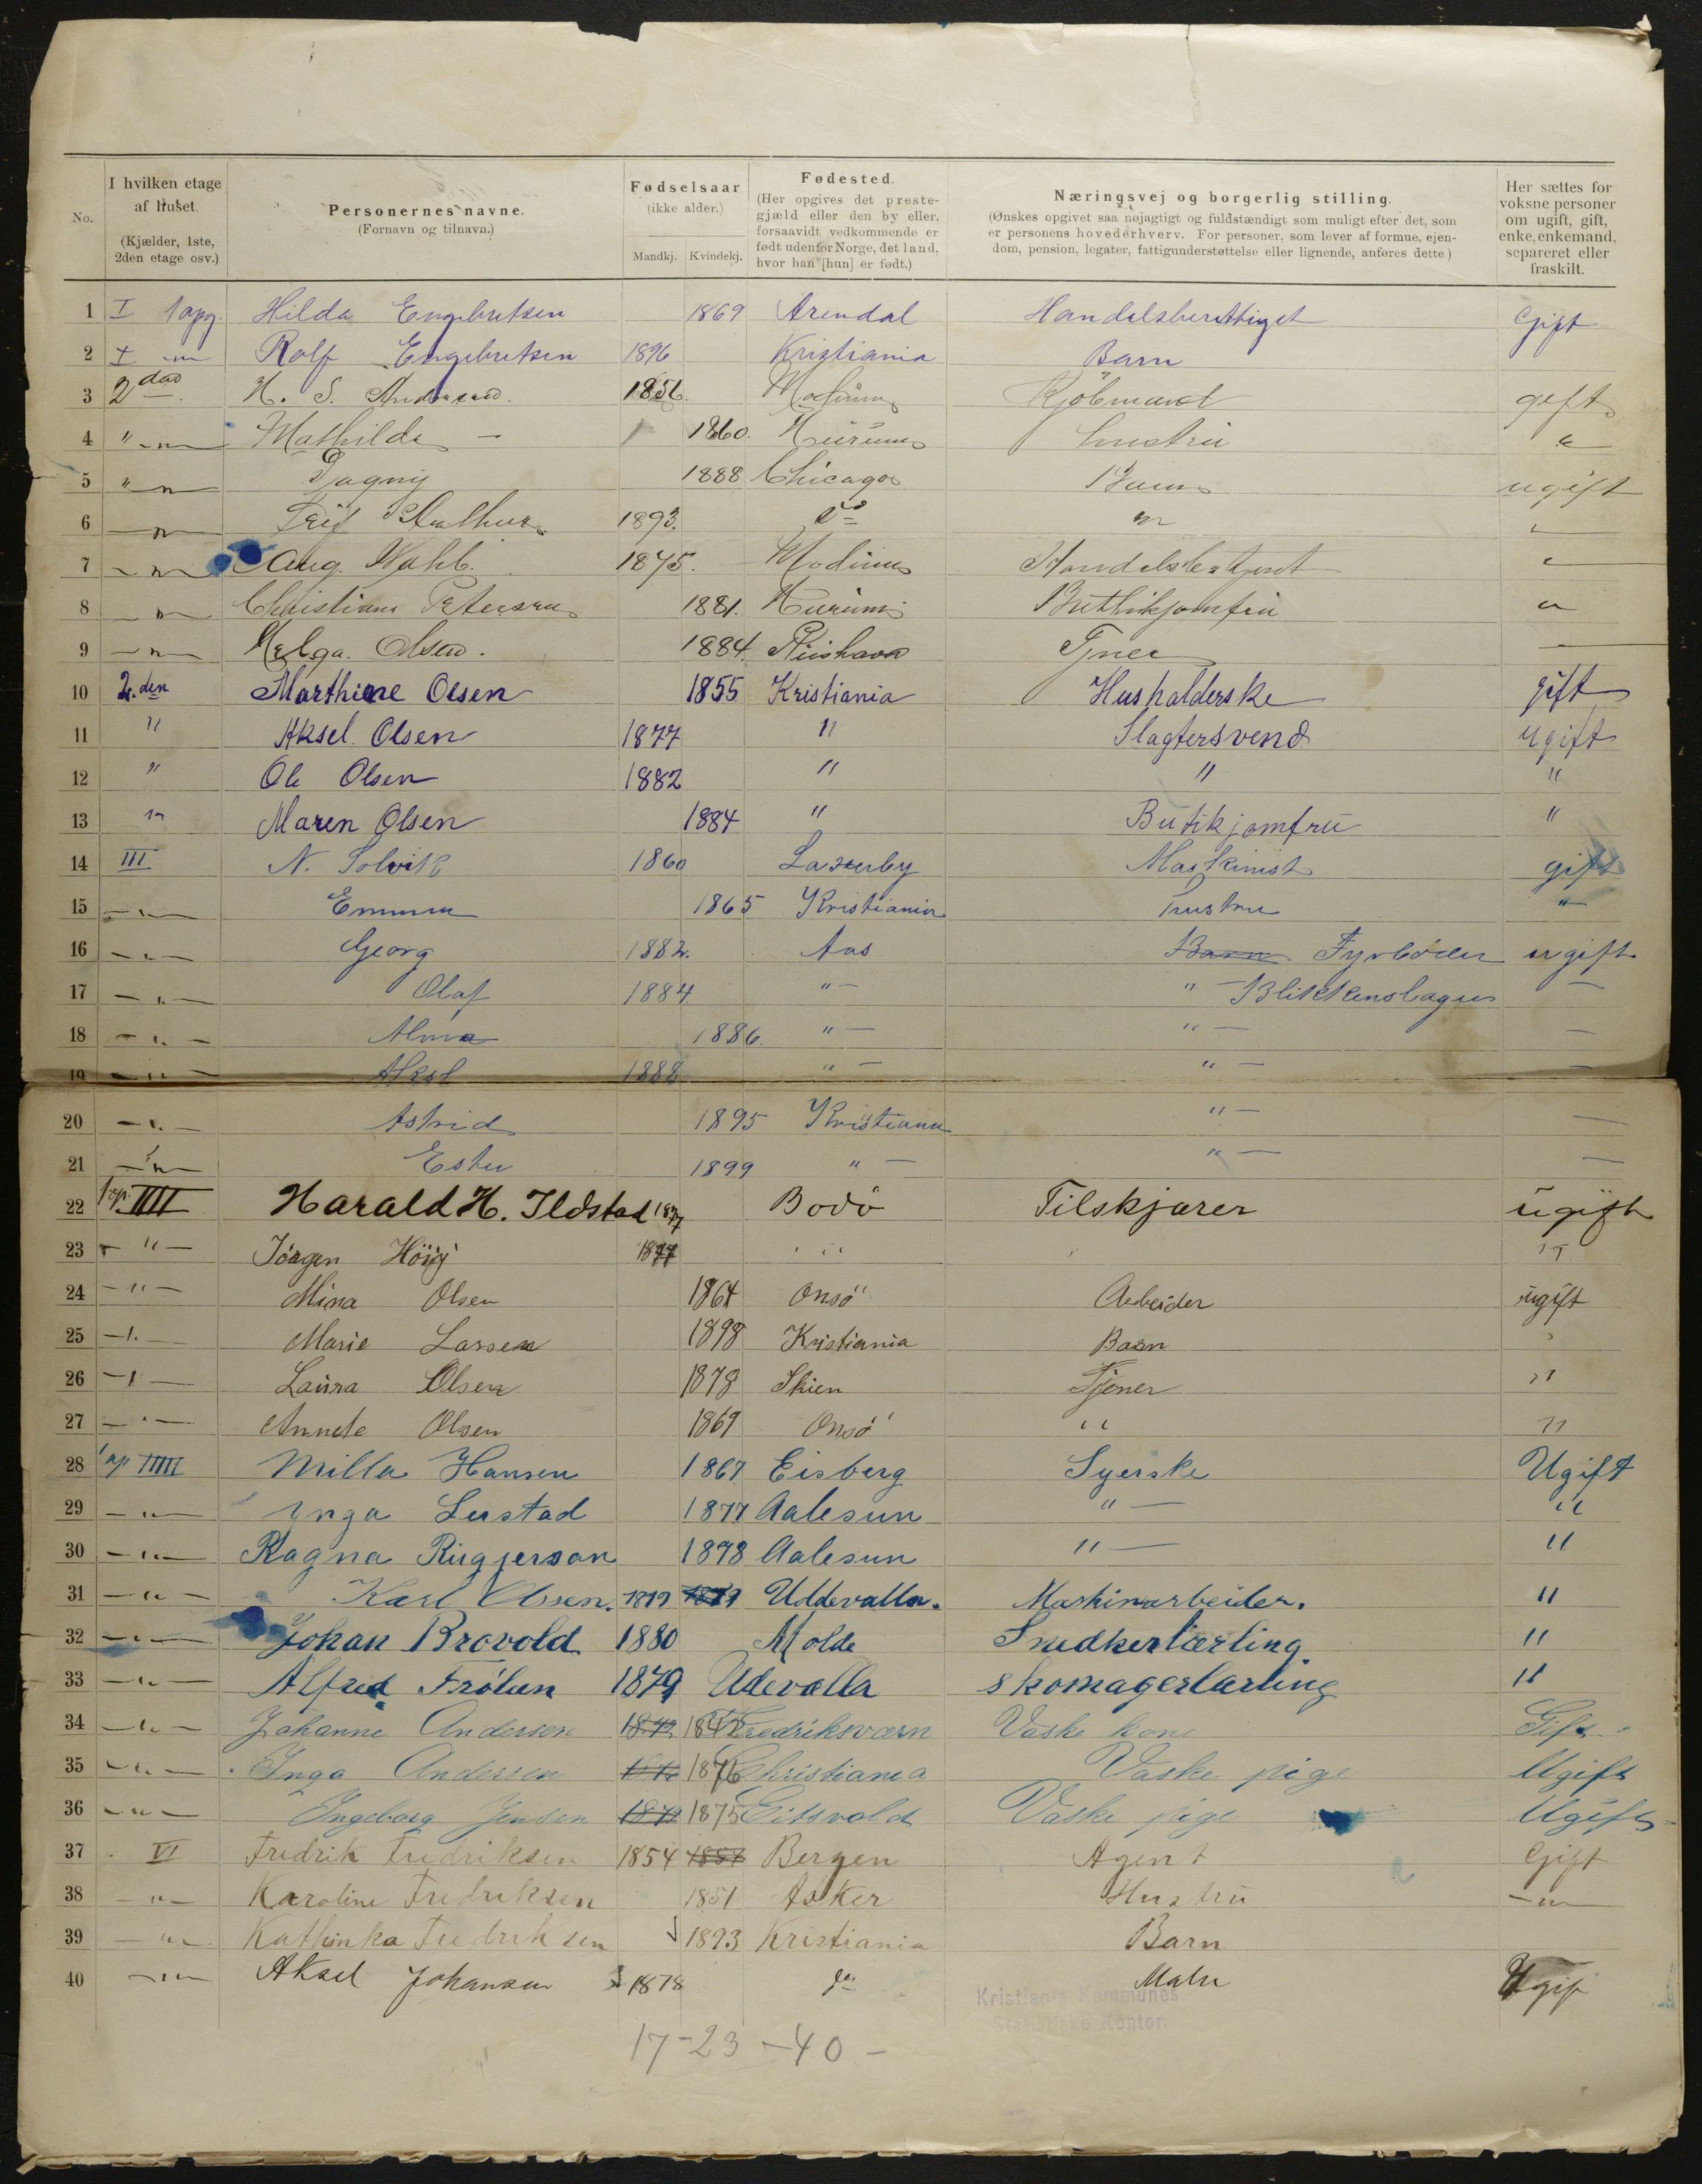 No.
I hvilken etage af huset. (Kjælder, 1ste, 2den etage osv.)
Personernes navne. (Fornavn og tilnavn.)
Fødselsaar (ikke alder.) Mandkj. Kvindekj.
Fødested. (Her opgives det prestegjæld eller den by eller, forsaavidt vedkommende er født udenfor Norge, det land, hvor han [hun] er født.)
Næringsvej og borgerlig stilling. (Ønskes opgivet saa nøjagtigt og fuldstændigt som muligt efter det, som er personens hovederhverv. For personer, som lever af formue, ejendom, pension, legater, fattigunderstøttelse eller lignende, anføres dette)
Her sættes for voksne personer om ugift, gift, enke, enkemand, separeret eller fraskilt.
1 I 1 opg. Hilda Engebretsen 1869 Arendal Handelsberettiget Gift
2 I -"- Rolf Engebretsen 1896 Kristiania Barn
3 2den H. S. Andersen. 1856. Modum Kjöbmand gift
4 "-"- Mathilde - 1860. Hurum hustru "
5 "-"- Dagny 1888 Chicago Barn ugift
6 -"- Leif Arthur 1893. do " "
7 -"- Aug. Wahl. 1875. Modum Handelsbetjent "
8 -"- Christiane Petersen 1881. Hurum Buttikjomfru "
9 -"- Helga Olsen. 1884. Tjner -
10 2.den Marthine Olsen 1855 Kristiania Husholderske gift
11 " Aksel Olsen 1877 " Slagtersvend ugift
12 " Ole Olsen 1882 " " "
13 " Maren Olsen 1884 " Butikjomfru "
14 III N. Solvik 1860 Maskinist gift
15 -"- Emma 1865 Kristiania Hustru "
16 -"- Georg 1882. Aas Barn Fyrböder ugift
17 -"- Olaf 1884 "- "- Blikkenslager -
18 -"- Alma 1886. "- "- -
19 -"- Aksel 1888 "- "- -
20 -"- Astrid 1895 Kristiania "- -
21 -"- Ester 1899 "- "- -
22 1 op. IIII Harald H. Ildstad 1877 Bodö Tilskjærer ugift
23 -"- Jörgen Höiy 1877 " "
24 -"- Mina Olsen 1864 Onsö Arbeider ugift
25 -"- Marie Larsen 1898 Kristiania Barn "
26 -"- Laura Olsen 1878 Skien Tjener "
27 -"- Annete Olsen 1869 Onsö " "
28 1 op IIIII Milla Hansen 1867 Eisberg Syerske Ugift
29 -"- Ynga Lerstad 1877 Aalesun "- "
30 -"- Ragna Rugjerson 1878 Aalesun "- "
31 -"- Karl Olssen. 1879 1879 Uddevalla. Maskinarbeider. "
32 -"- Johan Brovold 1880 Molde Snedkerlærling "
33 -"- Alfred Frölien 1879 Udevalla skomagerlærling "
34 -"- Johanne Andersen 1842 Fredriksværn Vaske kone Gift.
35 -"- Inga Andersen 1876 Christiania Vaske pige Ugift
36 -"- Ingeborg Jensen 1875 Eitsvold Vaske pige Ugift
37 VI Fredrik Fredriksen 1854 1854 Bergen Agent Gift
38 -"- Karoline Fredriksen 1851 Asker Hustru -"-
39 -"- Kathinka Fredriksen 1893 Kristiania Barn
40 -"- Aksel Johansen 1878 do Maler Ugif
Kristiania Kommunes
Statistiske Kontor.
17-23-40-